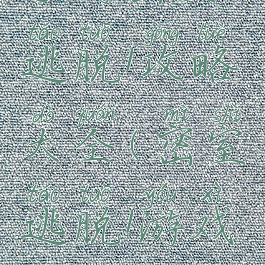 táo tuō gōng lüè
逃脱!攻略
dà quán mì shì
大全(密室
táo tuō yóu xì
逃脱!游戏